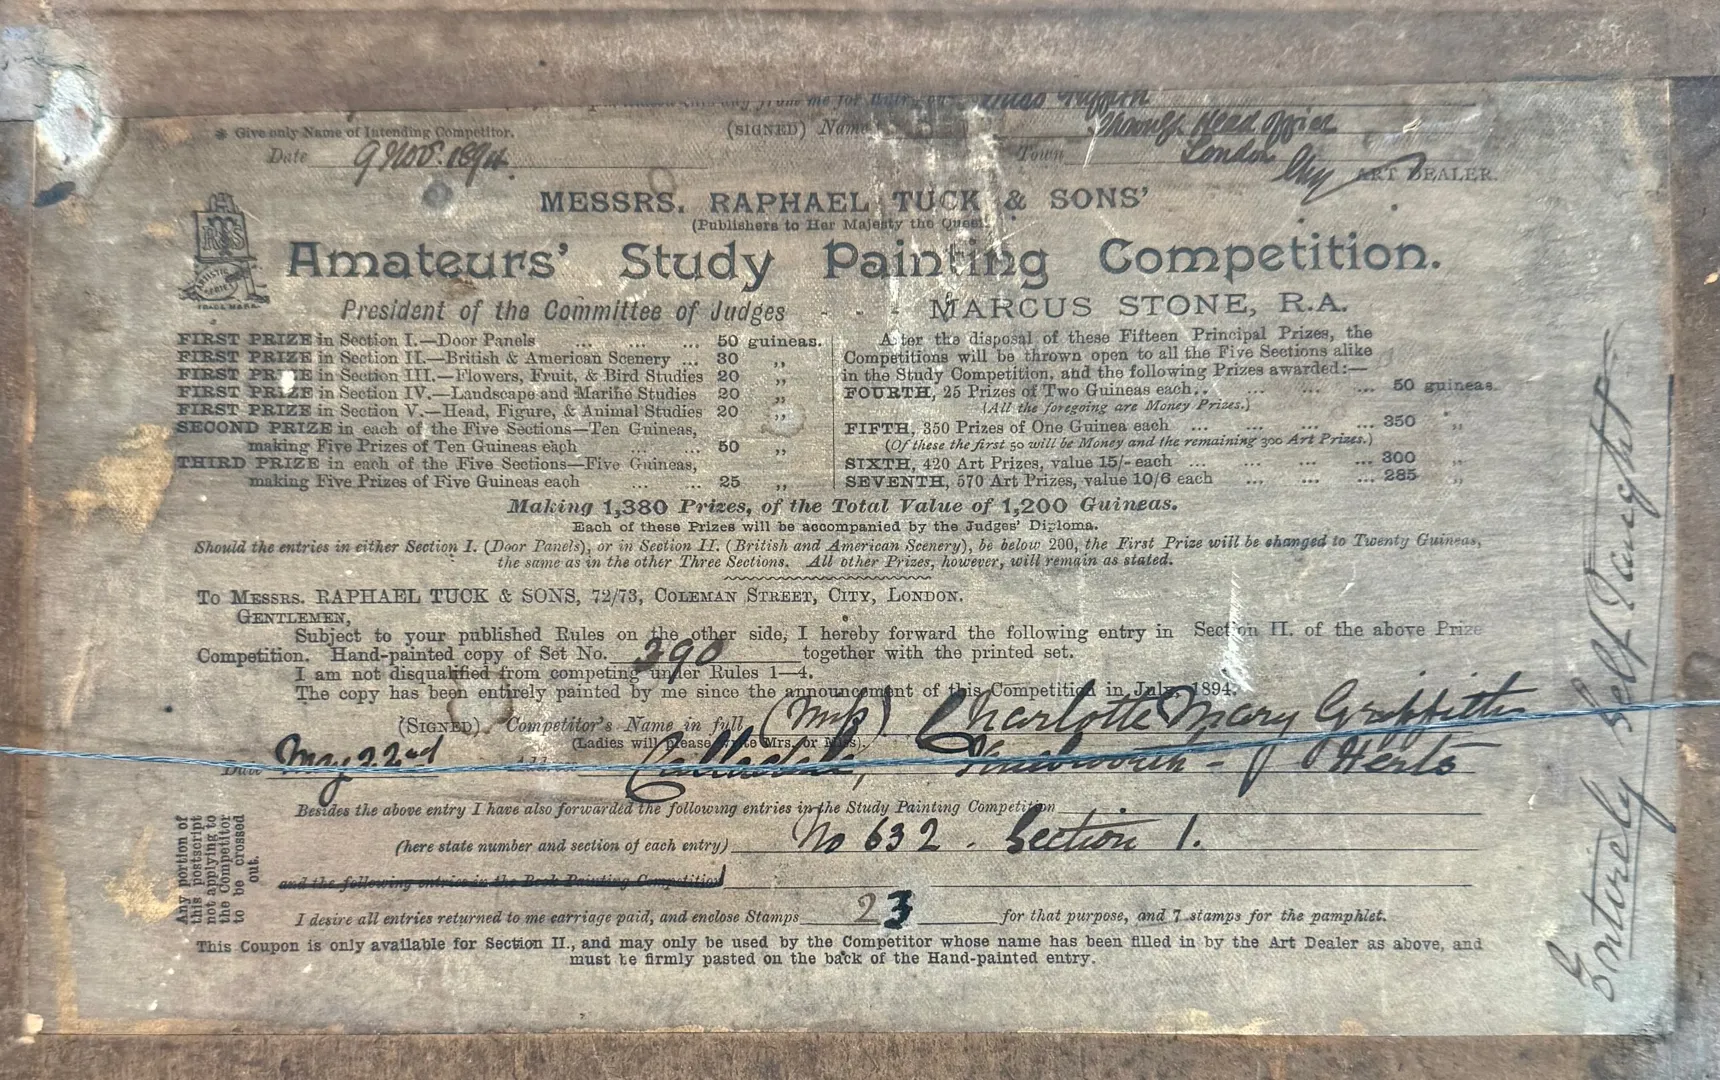 Miss Griffith
* Give only Name of Intending Competitor. (SIGNED) Name Head Office
Date 9 Nov. 1894. Town London
ART DEALER.
MESSRS. RAPHAEL TUCK & SONS'
(Publishers to Her Majesty the Queen)
Amateurs' Study Painting Competition.
ARTISTIC SERIES
TRADE MARK
President of the Committee of Judges - - - MARCUS STONE, R.A.
FIRST PRIZE in Section I.—Door Panels ... ... ... 50 guineas.
FIRST PRIZE in Section II.—British & American Scenery ... 30 ,,
FIRST PRIZE in Section III.—Flowers, Fruit, & Bird Studies 20 ,,
FIRST PRIZE in Section IV.—Landscape and Marine Studies 20 ,,
FIRST PRIZE in Section V.—Head, Figure, & Animal Studies 20 ,,
SECOND PRIZE in each of the Five Sections—Ten Guineas,
making Five Prizes of Ten Guineas each ... ... 50 ,,
THIRD PRIZE in each of the Five Sections—Five Guineas,
making Five Prizes of Five Guineas each ... ... 25 ,,
After the disposal of these Fifteen Principal Prizes, the
Competitions will be thrown open to all the Five Sections alike
in the Study Competition, and the following Prizes awarded:—
FOURTH, 25 Prizes of Two Guineas each.. ... ... ... 50 guineas.
(All the foregoing are Money Prizes.)
FIFTH, 350 Prizes of One Guinea each ... ... ... ... 350 ,,
(Of these the first 50 will be Money and the remaining 300 Art Prizes.)
SIXTH, 420 Art Prizes, value 15/- each ... ... ... ... 300 ,,
SEVENTH, 570 Art Prizes, value 10/6 each ... ... ... 285 ,,
Making 1,380 Prizes, of the Total Value of 1,200 Guineas.
Each of these Prizes will be accompanied by the Judges' Diploma.
Should the entries in either Section I. (Door Panels), or in Section II. (British and American Scenery), be below 200, the First Prize will be changed to Twenty Guineas,
the same as in the other Three Sections. All other Prizes, however, will remain as stated.
To MESSRS. RAPHAEL TUCK & SONS, 72/73, COLEMAN STREET, CITY, LONDON.
GENTLEMEN,
Subject to your published Rules on the other side, I hereby forward the following entry in Section II. of the above Prize
Competition. Hand-painted copy of Set No. 390 together with the printed set.
I am not disqualified from competing under Rules 1—4.
The copy has been entirely painted by me since the announcement of this Competition in July, 1894.
(SIGNED) Competitor's Name in full Charlotte Mary Griffith
(Ladies will please write Mrs. or Miss).
Date May 22nd Address Knebworth - Herts
Besides the above entry I have also forwarded the following entries in the Study Painting Competition
(here state number and section of each entry) No 632. Section 1.
and the following entries in the Book Painting Competition
I desire all entries returned to me carriage paid, and enclose Stamps 23 for that purpose, and 7 stamps for the pamphlet.
This Coupon is only available for Section II., and may only be used by the Competitor whose name has been filled in by the Art Dealer as above, and
must be firmly pasted on the back of the Hand-painted entry.
Any portion of
this postscript
not applying to
the Competitor
to be crossed
out.
Entirely Self Taught